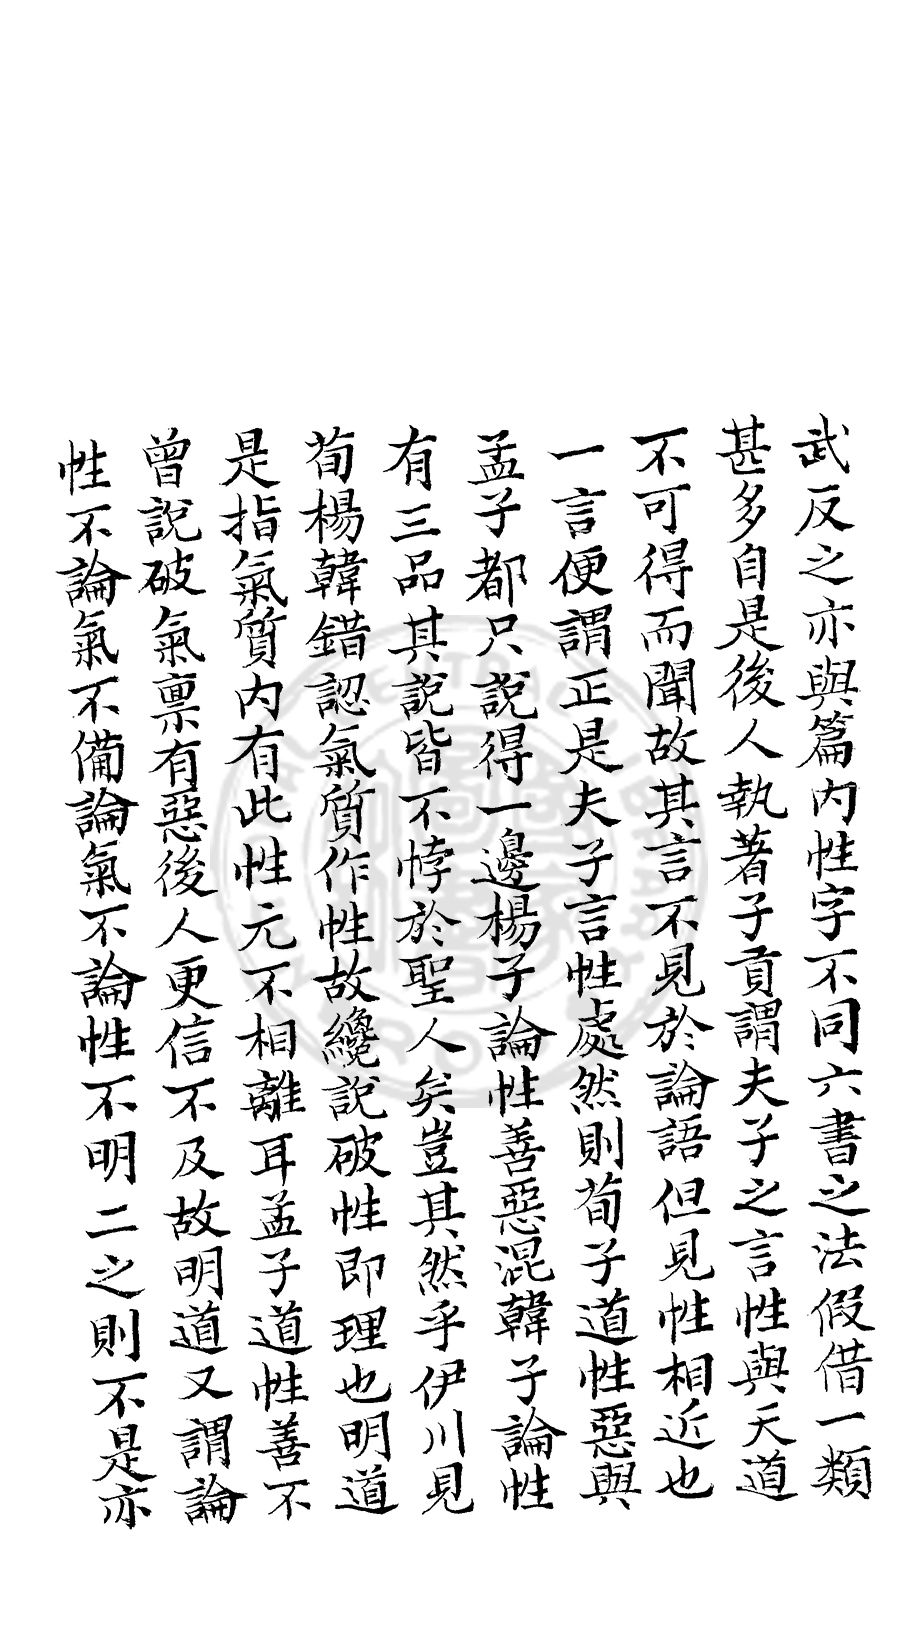 武反之亦與篇内性字不同六書之法假借一類
甚多自是後人執著子貢謂夫子之言性與天道
不可得而聞故其言不見於論語但見性相近也
一言便謂正是夫子言性處然則荀子道性惡與
孟子都只說得一邊楊子論性善惡混韓子論性
有三品其說皆不悖於聖人矣豈其然乎伊川見
荀楊韓錯認氣質作性故纔說破性即理也明道
是指氣質内有此性元不相離耳孟子道性善不
曾說破氣禀有惡後人更信不及故明道又謂論
性不論氣不備論氣不論性不明二之則不是亦